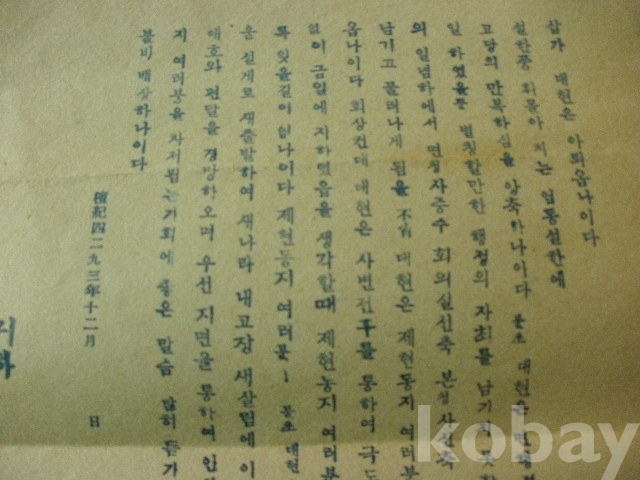 삼가 대현은 아뢰옵나이다
설한풍 휘몰아 치는 엄동설한에
고당의 만복하심을 앙축하나이다 불초 대현은 면행정
일 하였을뿐 별칭할만한 행정의 자최를 남기지 못하
의 일념하에서 면청사중수 회의실신축 본청사신축
남기고 물러나게 됨을 不肖 대현은 제현동지 여러분
옵나이다 회상컨대 대현은 사변전후를 통하여 극도
없이 금일에 지하였음을 생각할때 제현동지 여러분
록 잊을길이 없나이다 제현동지 여러분 ! 불초 대현
운 설계로 재출발하여 새나라 내고장 새살림에 이
애호와 편달을 갱망하오며 우선 지면을 통하여 인사
지 여러분을 차저뵈는기회에 좋은 말씀 많이 듣기
불비 배상하나이다
檀紀四二九三年十二月 日
귀하
kobay